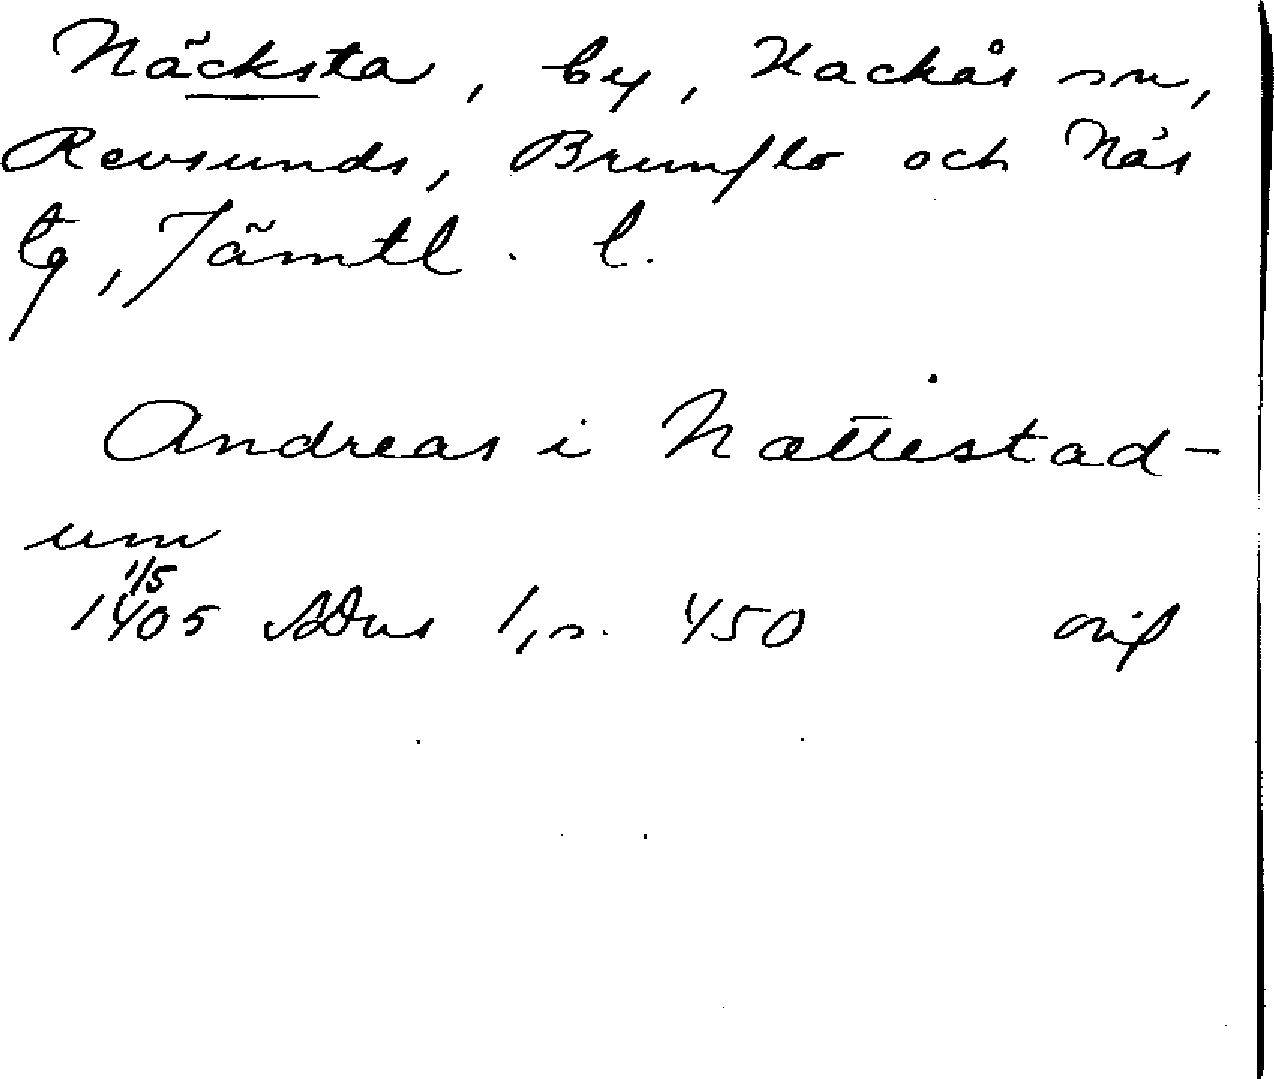 Näcksta, by, Hackås sn,
Revsunds, Brunflo och Näs
tg, Jämtl. l.
Andreas i Nættestad-
um
1/5
1405 SDns 1, s. 450 orig